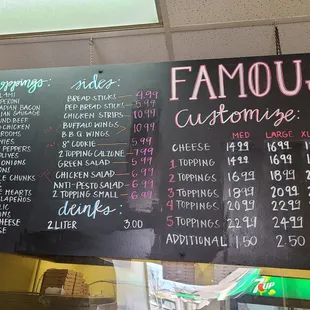 toppings:
LAMI
PERONI
ADIAN BACON
IAN SAUSAGE
UND BEEF
CHICKEN
ROOMS
PEPPERS
ONIONS
OLIVES
ONIONS
LE CHUNKS
HEARTS
LAPEÑOS
IC
ONS
CHEESE
sides:
BREAD STICKS 4.99
PEP BREAD STICKS 5.99
CHICKEN STRIPS 10.99
BUFFALO WINGS 10.99
B.B.Q. WINGS 10.99
8" COOKIE 5.99
2 TOPPING CALZONE
GREEN SALAD 5.99
CHICKEN SALAD 6.99
ANTI-PESTO SALAD 6.99
2 TOPPING SMALL 6.99
drinks:
2 LITER 3.00
FAMOUS
Customize:
MED LARGE XL
CHEESE 14.99 16.99
1 TOPPING 14.99 16.99
2 TOPPINGS
3 TOPPINGS
4 TOPPINGS
5 TOPPINGS 22.99 24.99
ADDITIONAL 1.50 2.50
7UP